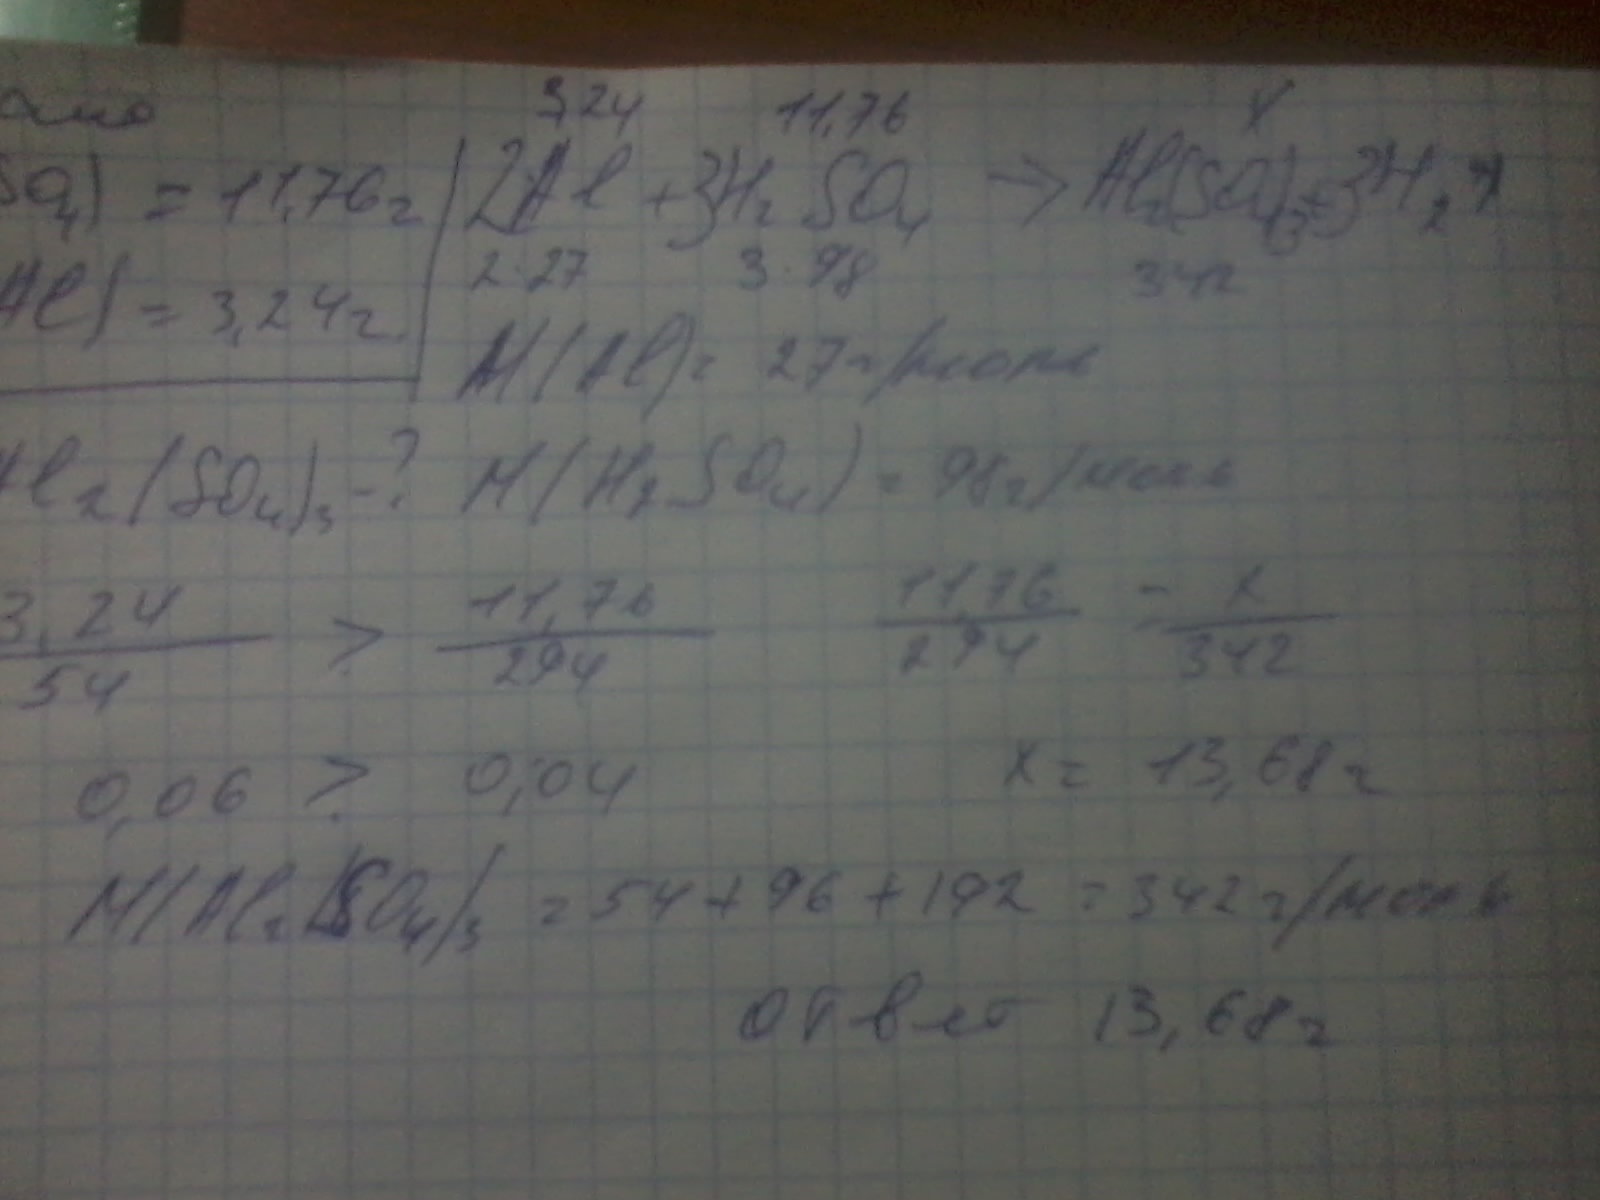 ано
SO₄) = 11,76г
Al) = 3,24г
Al₂(SO₄)₃ - ?
3,24 11,76 x
2Al + 3H₂SO₄ → Al₂(SO₄)₃ + 3H₂↑
2·27 3·98 342
M(Al) = 27г/моль
M(H₂SO₄) = 98г/моль
3,24/54 > 11,76/294 11,76/294 = x/342
0,06 > 0,04 x = 13,68г
M(Al₂(SO₄)₃ = 54+96+192 = 342г/моль
ответ 13,68г